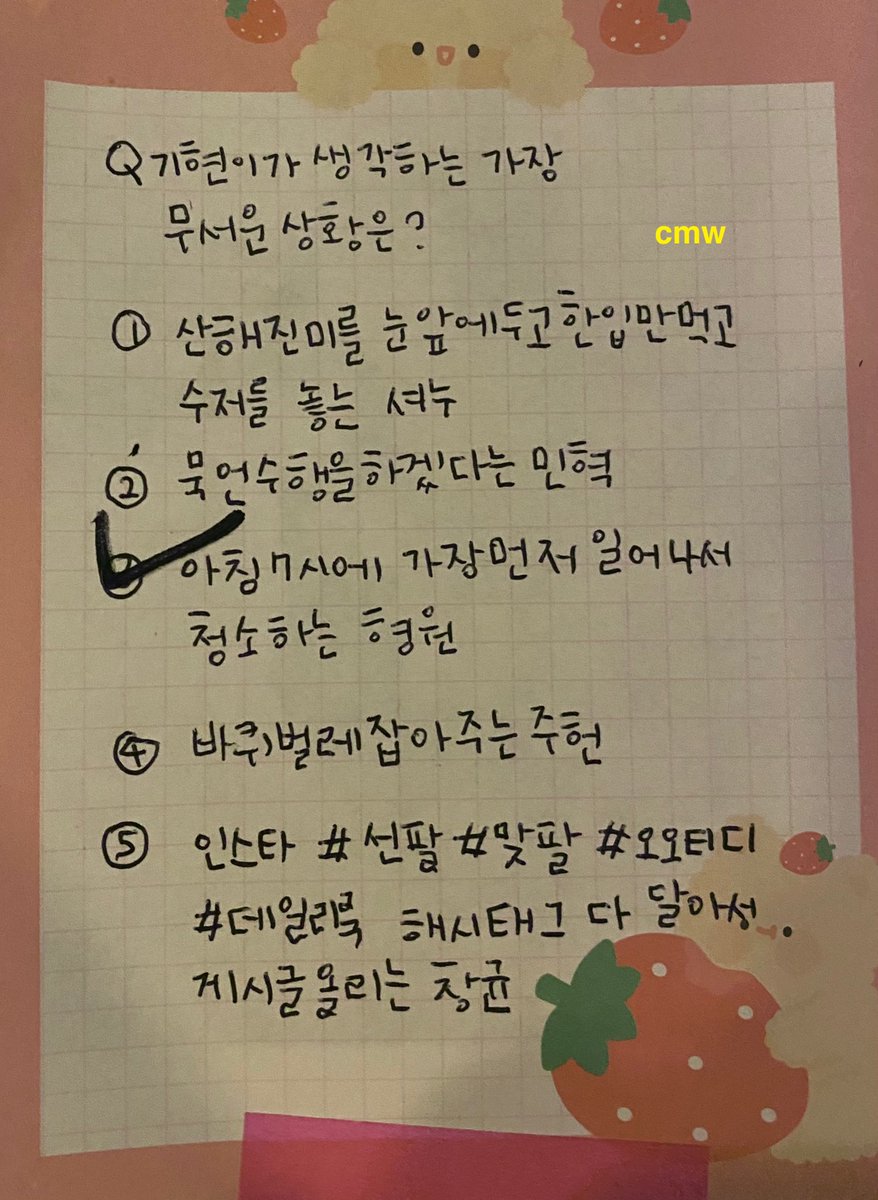 Q 기현이가 생각하는 가장
무서운 상황은?
cmw
① 산해진미를 눈앞에두고 한입만먹고
수저를 놓는 셔누
② 묵언수행을하겠다는 민혁
③ 아침 7시에 가장먼저 일어나서
청소하는 형원
④ 바퀴벌레잡아주는 주헌
⑤ 인스타 #선팔 #맞팔 #오오티디
#데일리룩 해시태그 다 달아서
게시글올리는 창균